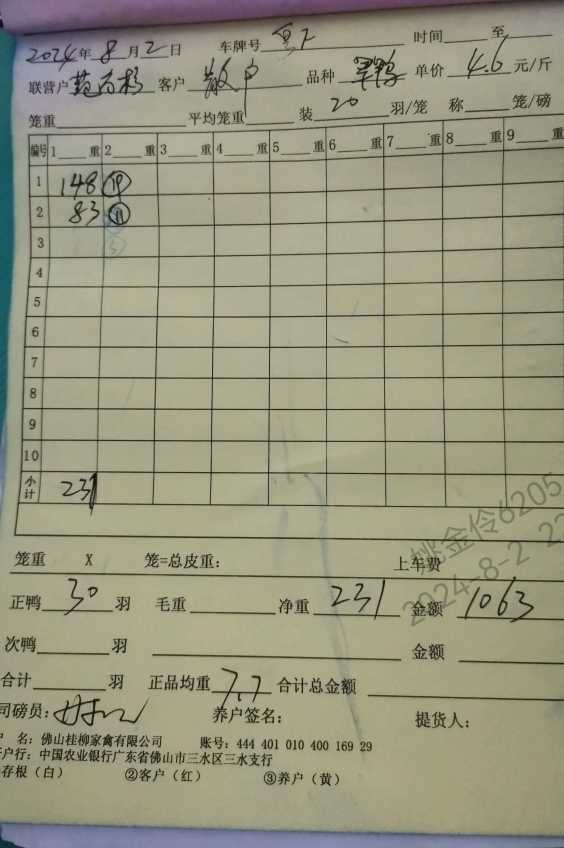 2024年8月2日 车牌号 时间 至
联营户 客户 散户 品种 单价 4.6 元/斤
笼重 平均笼重 装 20 羽/笼 称 笼/磅
编号 1 重 2 重 3 重 4 重 5 重 6 重 7 重 8 重 9 重
1 148 19
2 83 11
3
4
5
6
7
8
9
10
小计 231
笼重 X 笼=总皮重: 上车费
正鸭 30 羽 毛重 净重 231 金额 1063
次鸭 羽 金额
合计 羽 正品均重 7.7 合计总金额
司磅员: 养户签名: 提货人:
户 名: 佛山桂柳家禽有限公司 账号: 444 401 010 400 169 29
户行: 中国农业银行广东省佛山市三水区三水支行
存根(白) ②客户(红) ③养户(黄)
姚金伶6205
2024-8-2 22